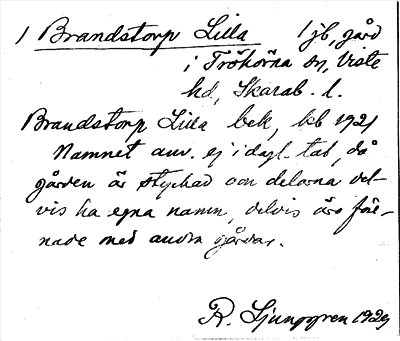 1 Brandstorp Lilla 1 jb, gård
i Trökörna sn, Viste
hd, Skarab. l.
Brandstorp Lilla bek, kb 1921
Namnet anv. ej i dagl. tal, då
gården är styckad och delarna del-
vis ha egna namn, delvis äro före-
nade med andra gårdar.
R. Ljunggren 1929